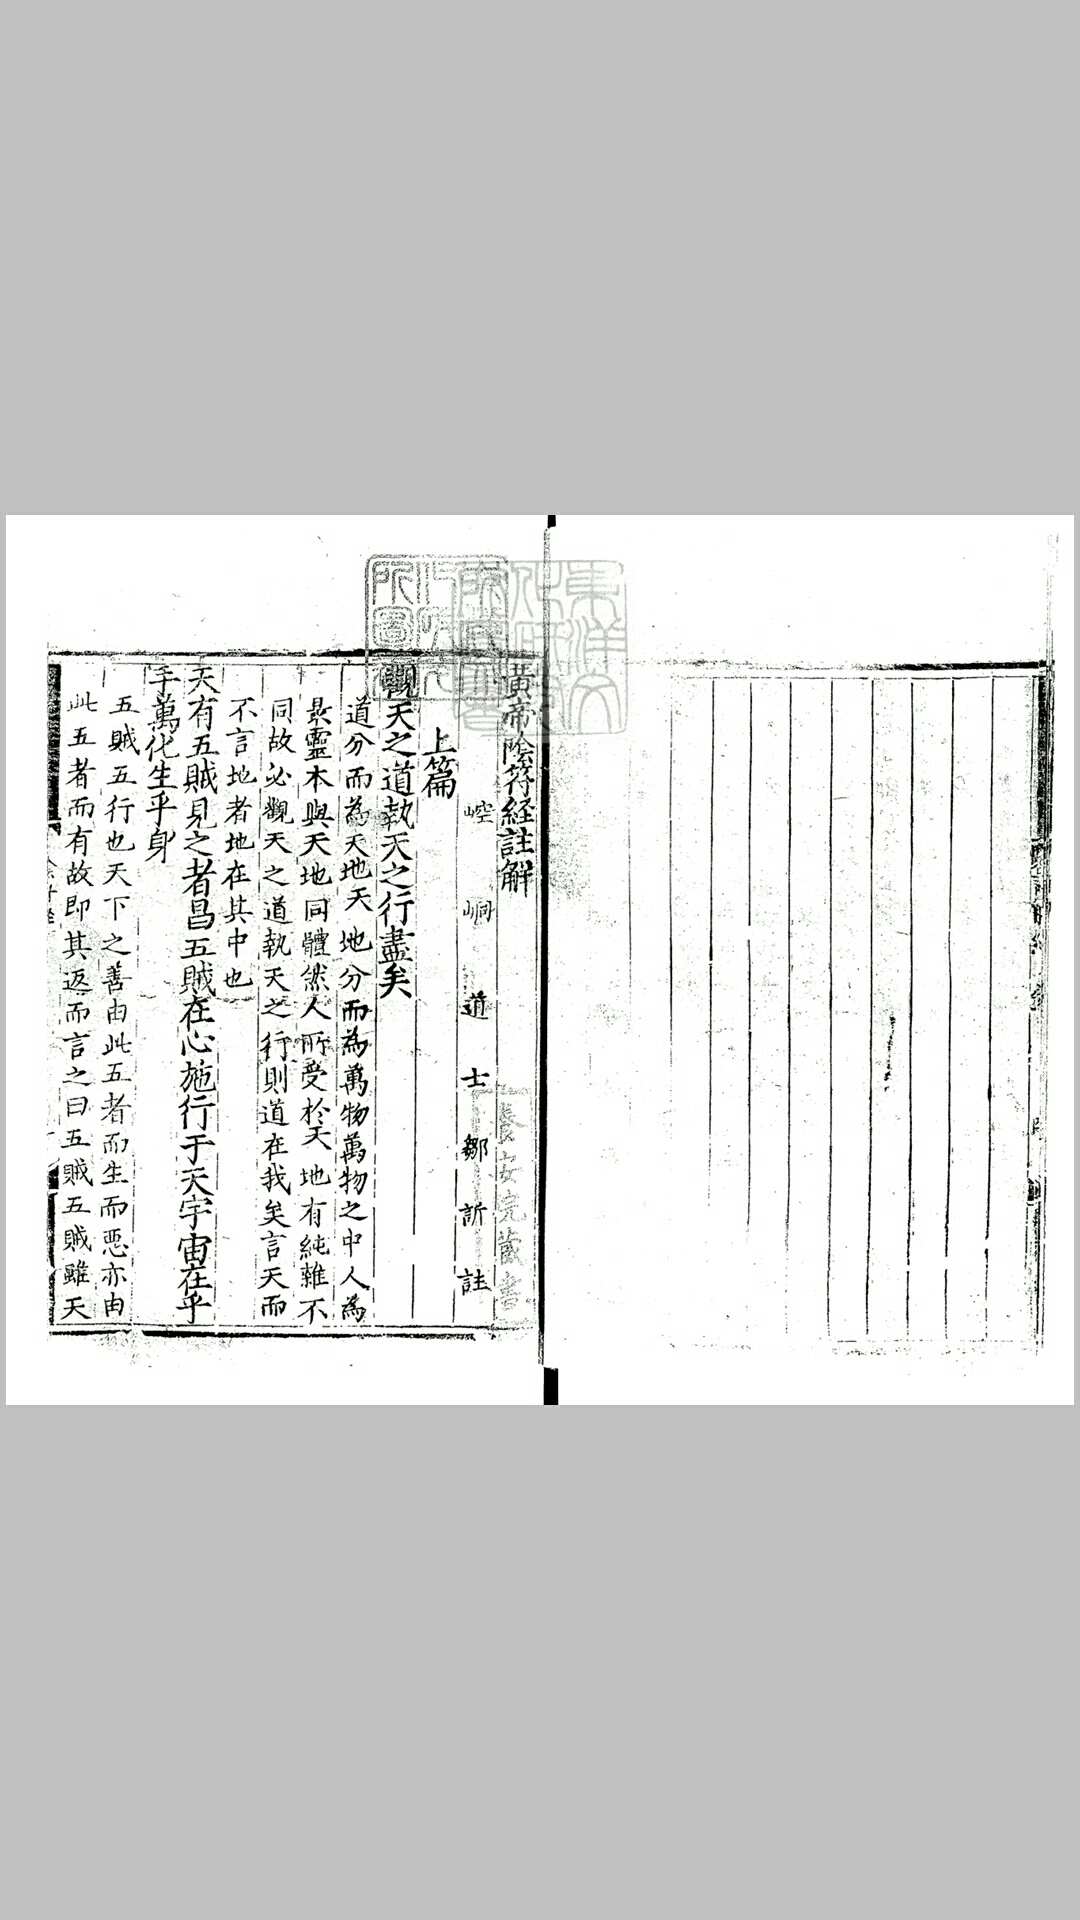 黃帝陰符經註解
崆峒道士鄒訢註
上篇
觀天之道執天之行盡矣
道分而為天地天地分而為萬物萬物之中人為
最靈本與天地同體然人所受於天地有純雜不
同故必觀天之道執天之行則道在我矣言天而
不言地者地在其中也
天有五賊見之者昌五賊在心施行于天宇宙在乎
手萬化生乎身
五賊五行也天下之善由此五者而生而惡亦由
此五者而有故即其返而言之曰五賊五賊雖天
養安院藏書
東洋文